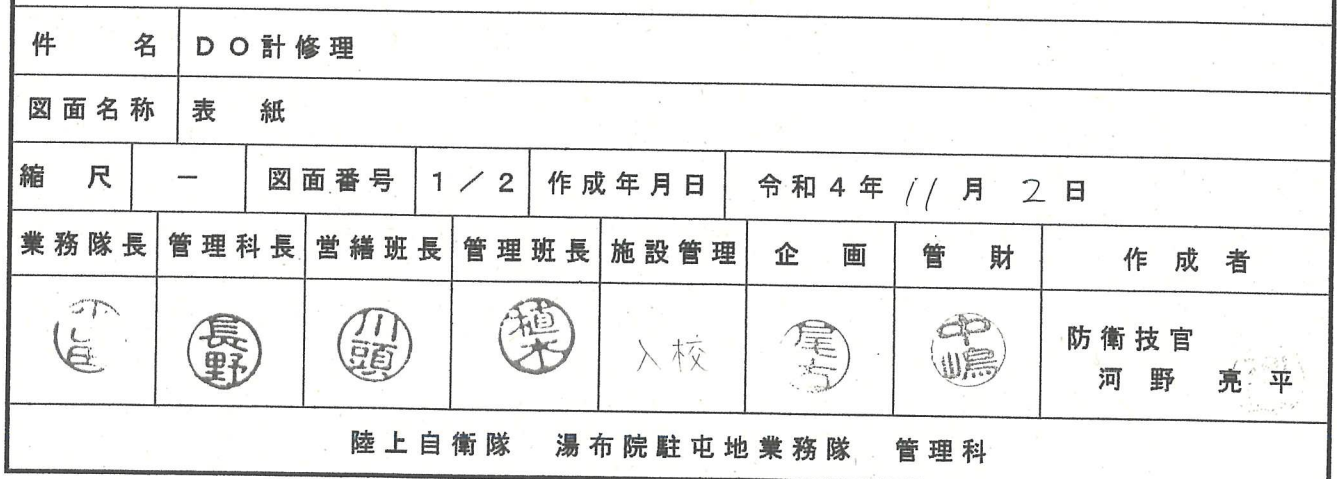 件 名 DO計修理
図面名称 表 紙
縮 尺 － 図面番号 1／2 作成年月日 令和4年 11月 2日
業務隊長 管理科長 営繕班長 管理班長 施設管理 企 画 管 財 作 成 者
長野 川頭 植木 入校 中嶋 防衛技官
河野 亮平
陸上自衛隊 湯布院駐屯地業務隊 管理科